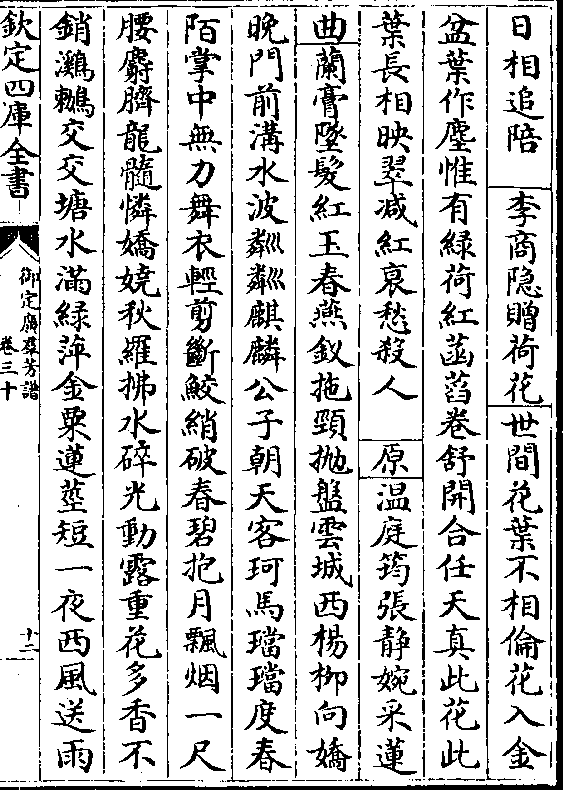 日相追陪　李商隐贈荷花世間花葉不相倫花入金
盆葉作塵惟有緑荷紅菡萏卷舒開合任天真此花此
葉長相映翠减紅衰愁殺人　原温庭筠張静婉采蓮
曲蘭膏墜髮紅玉春燕釵拖頸抛盤雲城西楊柳向嬌
晚門前溝水波粼粼麒麟公子朝天客珂馬璫璫度春
陌掌中無力舞衣輕剪斷鮫綃破春碧抱月飄烟一尺
腰麝臍龍髓憐嬌嬈秋羅拂水碎光動露重花多香不
銷鸂鶒交交塘水滿緑萍金粟蓮莖短一夜西風送雨
欽定四庫全書
御定廣羣芳譜
卷三十
十二